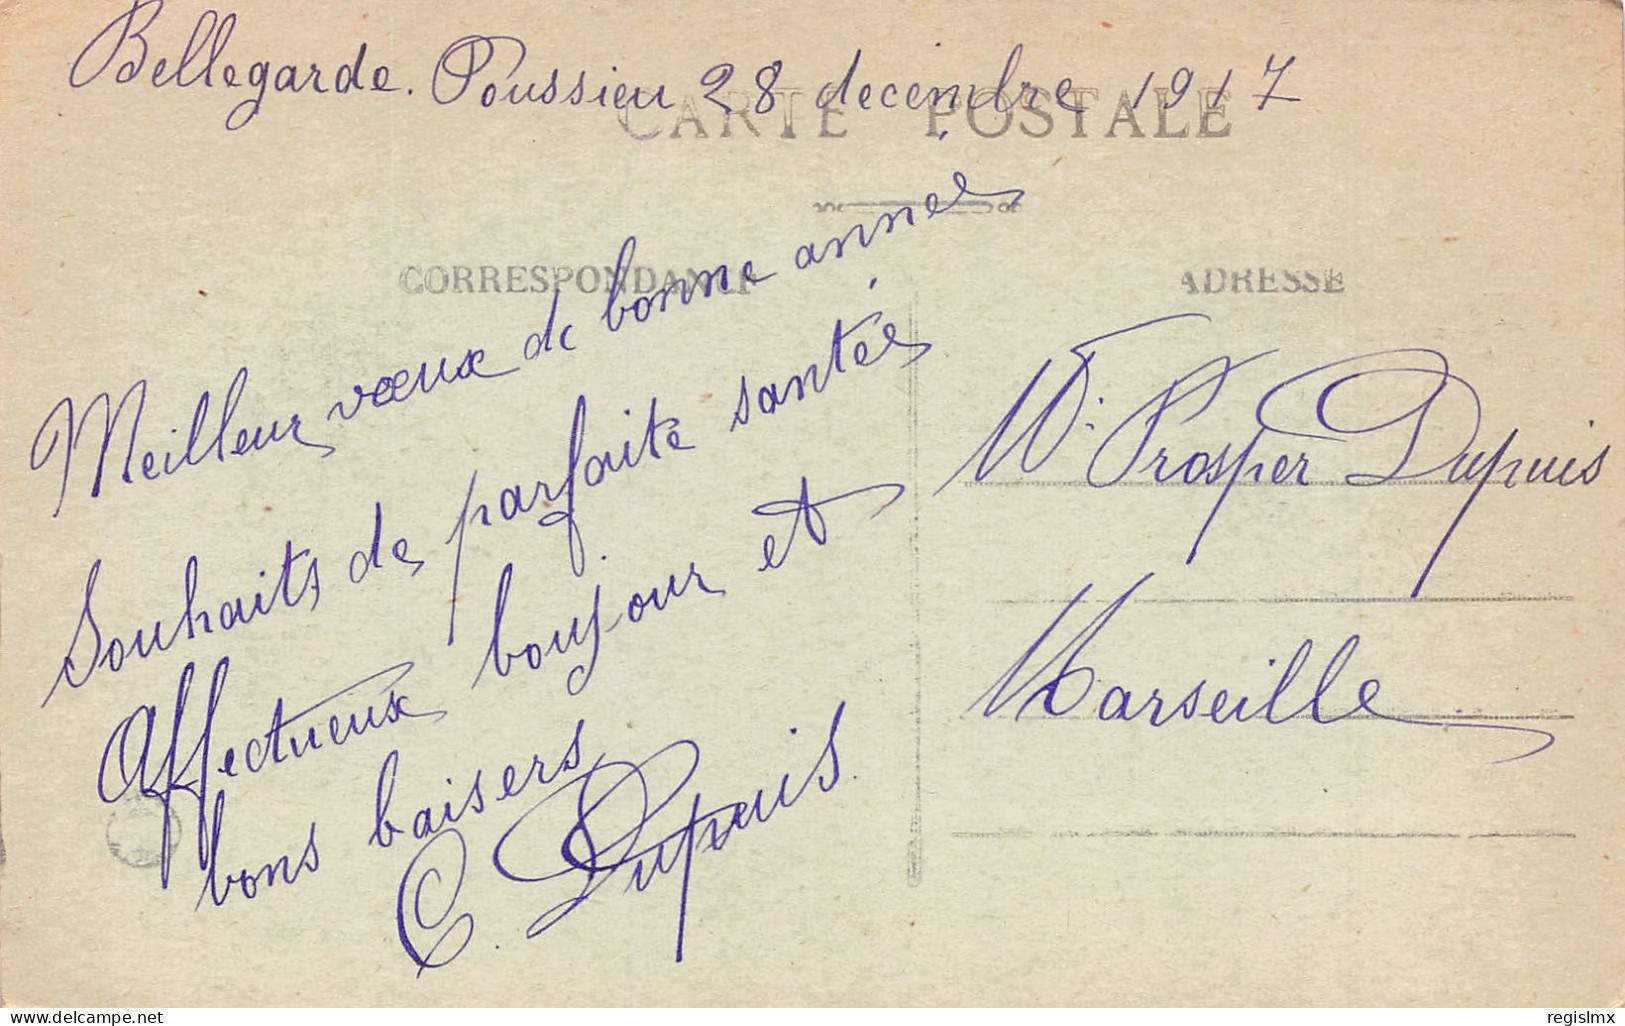 Bellegarde. Poussieu 28 decembre 1917
CARTE POSTALE
CORRESPONDANCE
ADRESSE
Meilleur vœux de bonne année
Souhaits de parfaite santée
Affectueux boujour et
bons baisers
C. Dupuis.
Mr. Prosper Dupuis
Marseille
delcampe.net
regislmx